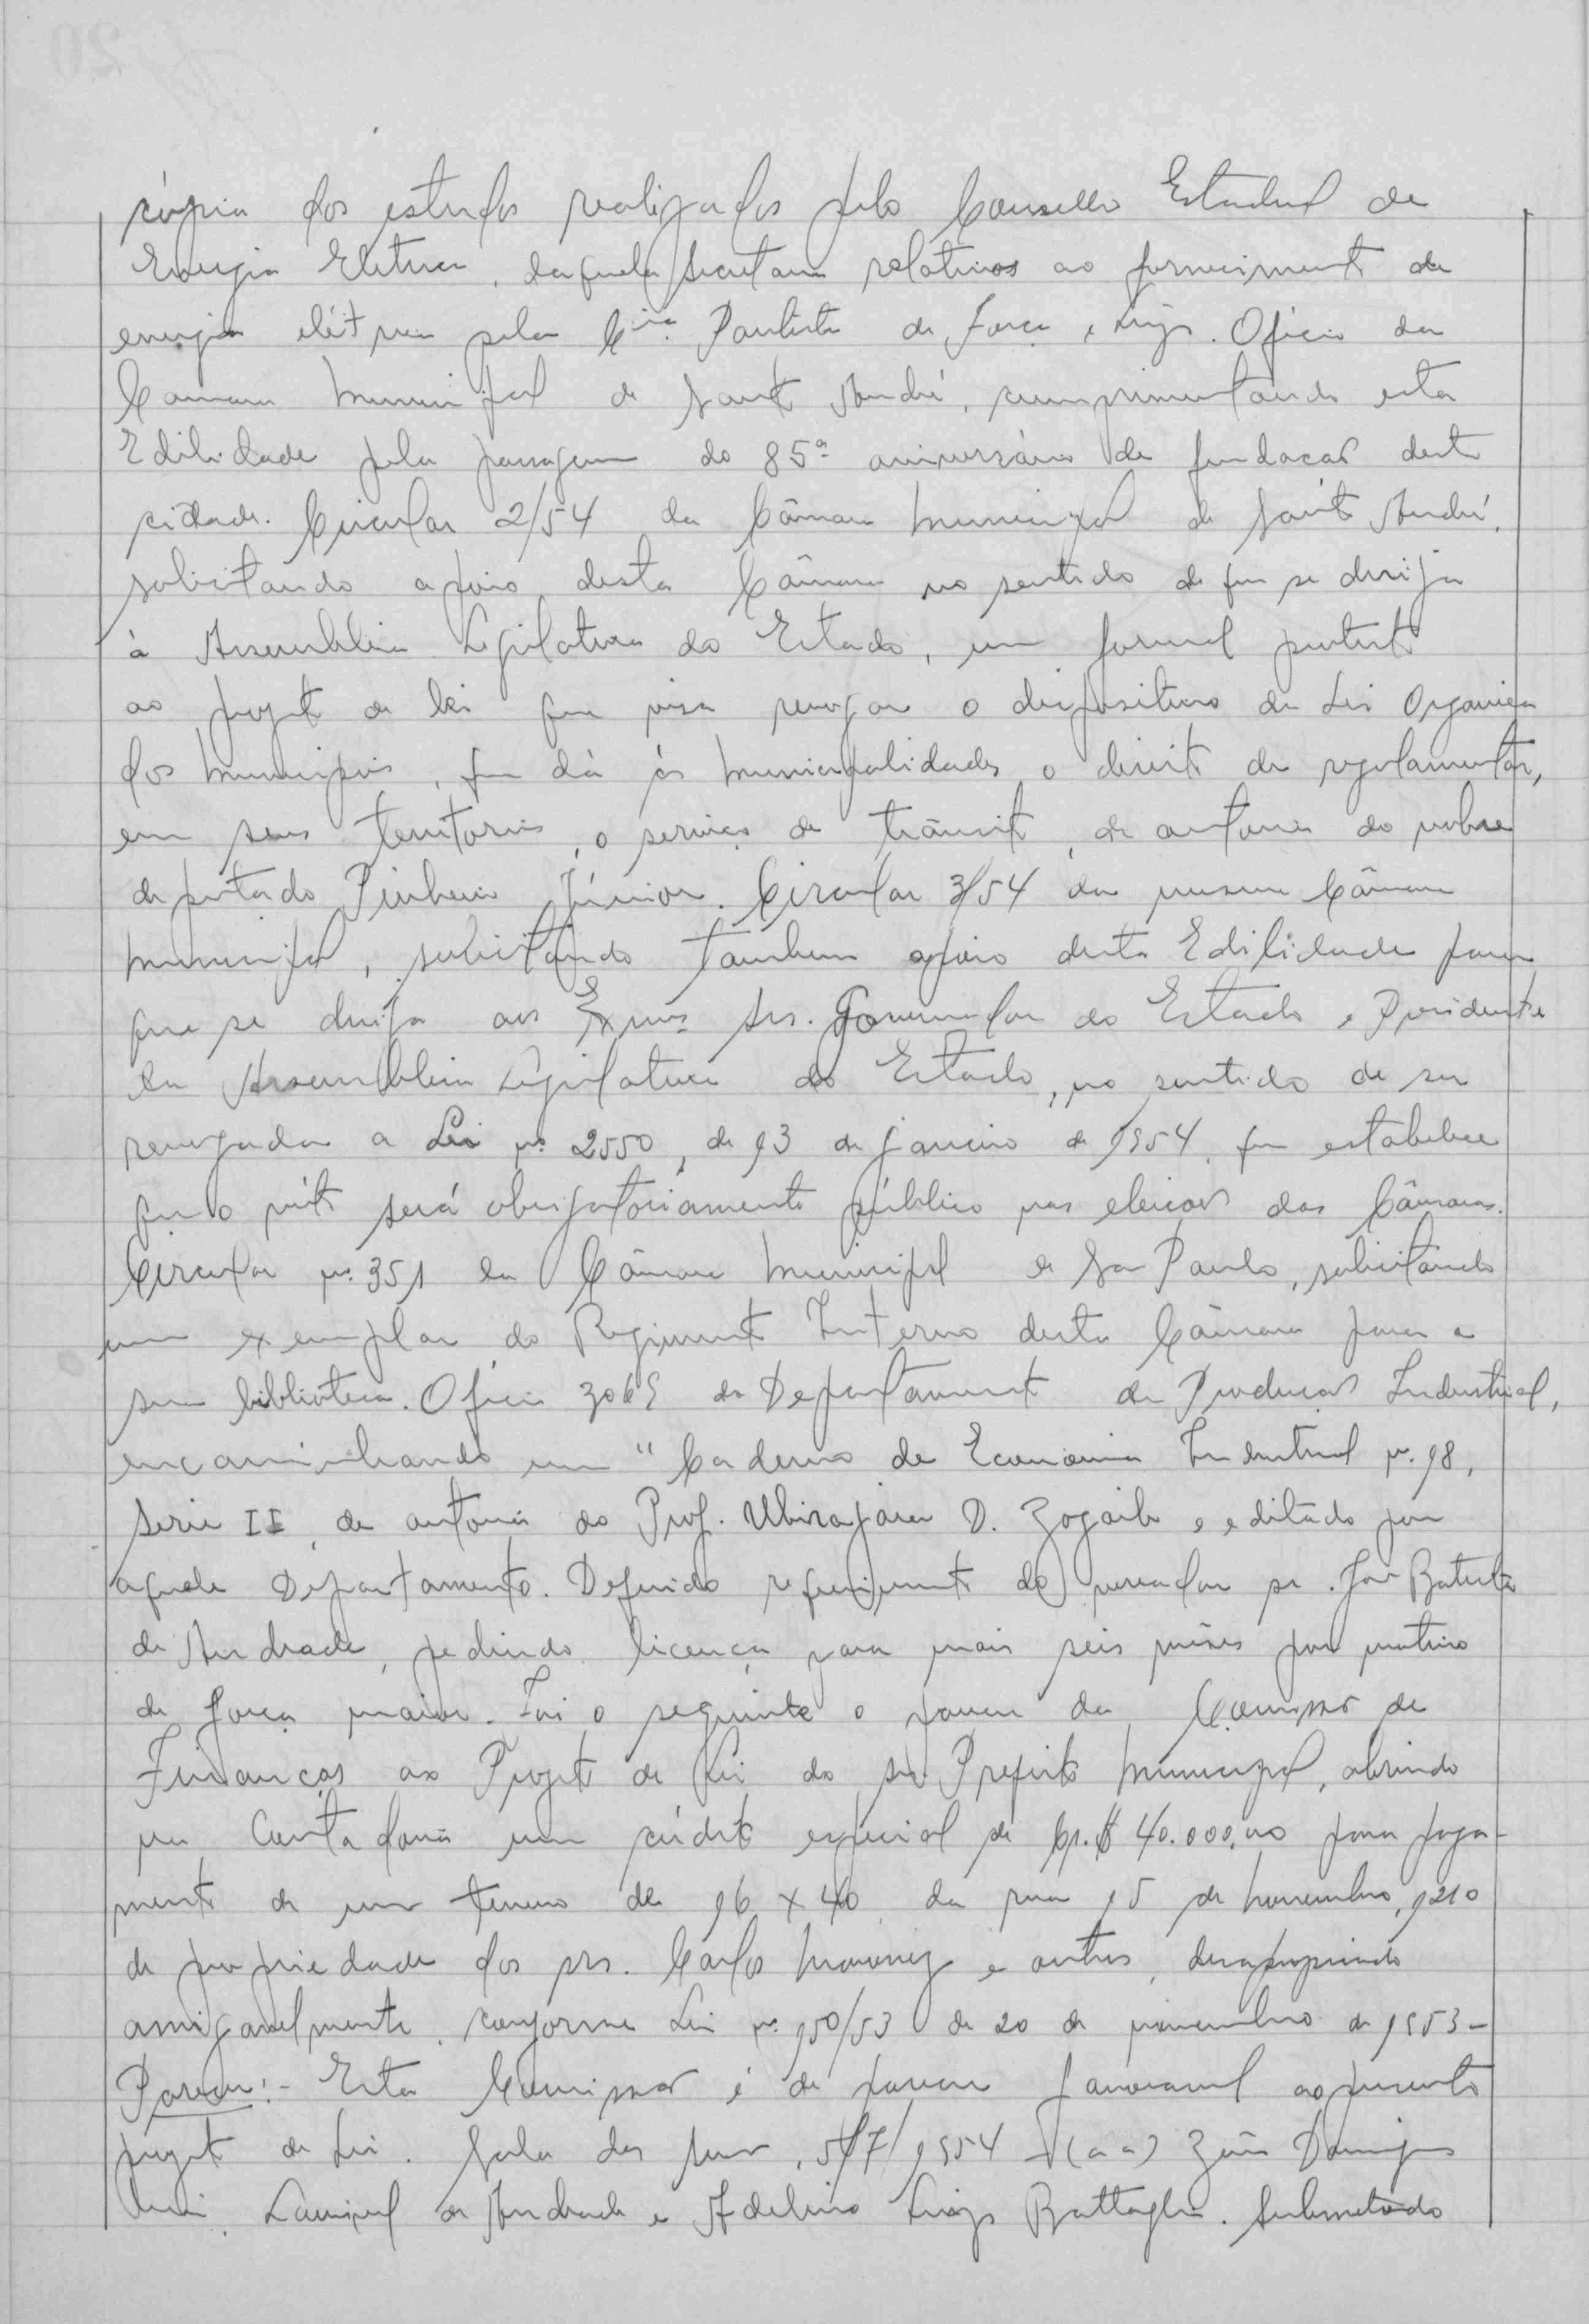 cópia dos estudos realizados pelo Conselho Estadual de
Energia Eletrica, daquela Secretaria relativos ao fornecimento de
energia elétrica pela Cia. Paulista de Força e Luz. Oficio da
Camara Municipal de Santo André, cumprimentando esta
Edilidade pela passagem do 85º aniversário de fundação desta
cidade. Circular 2/54 da Câmara Municipal de Santo André,
solicitando apoio desta Câmara no sentido de que se dirija
à Assembleia Legislativa do Estado, um formal protesto
ao projeto de lei que visa revogar o dispositivo da Lei Organica
dos Municipios, que dá ás Municipalidades o direito de regulamentar,
em seus territorios, o serviço de trânsito, de autoria do nobre
deputado Pinheiro Júnior. Circular 3/54 da mesma Câmara
Municipal, solicitando tambem apoio desta Edilidade para
que se dirija aos Exmos Srs. Governador do Estado e Presidente
da Assembleia Legislativa do Estado, no sentido de ser
revogada a Lei nº 2550, de 13 de janeiro de 1954, que estabelece
que o voto será obrigatoriamente público nas eleições das Câmaras.
Circular nº 351 da Câmara Municipal de São Paulo, solicitando
um exemplar do Regimento Interno desta Câmara para a
sua biblioteca. Oficio 3069 do Departamento de Produção Industrial,
encaminhando um "Caderno de Economia Industrial nº 18,
Serie II, de autoria do Prof. Ubirajara D. Zogaib e editado por
aquele Departamento. Deferido requerimento do vereador sr. José Batista
de Andrade, pedindo licença para mais seis mêses por motivo
de força maior. Foi o seguinte o parecer da Comissão de
Finanças ao Projeto de Lei do sr. Prefeito Municipal, abrindo
na Contadoria um crédito especial de Cr.$ 40.000,00 para paga-
mento de um terreno de 16 x 40 da rua 15 de Novembro, 1210
de propriedade dos srs. Carlos e outros, desapropriado
amigavelmente, conforme Lei nº 150/53 de 20 de novembro de 1953-
Parecer:- Esta Comissão é de parecer favoravel ao presente
projeto de Lei. Sala das 5/7/1954 - (a a) Domingos
de Andrade e Adelino Luiz Battaglia. Submetido